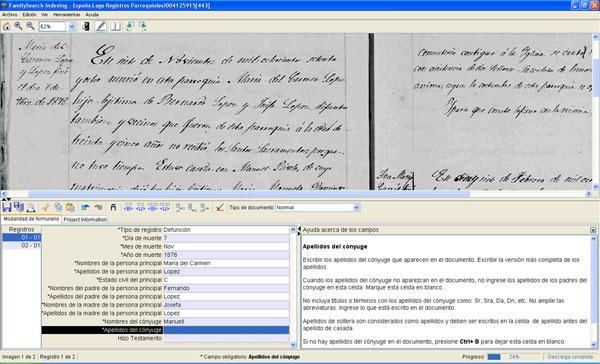 FamilySearch Indexing - España Lugo Registros Parroquiales/004125915[443]
Archivo Edición Ver Herramientas Ayuda
62%
María del
Carmen Lopez
y Lopez
el día 7
1878
En siete de Noviembre de mil ochocientos setenta
y ocho murió en esta parroquia María del Carmen Lopez
hija legítima de Bernardo Lopez y Josefa Lopez, difuntos
tambien y vecinos que fueron de esta parroquia á la edad de
treinta y cinco años no recibió los Santos Sacramentos porque
no tuvo tiempo. Estuvo casada con Manuel
María Manuela
cementerio contiguo á la Iglesia
con asistencia de dos Señores Sacerdotes
segun la costumbre de esta parroquia
Y para que conste
de Febrero de mil
Tipo de documento Normal
Modalidad de formulario Project Information
Registros
01 - 01
02 - 01
*Tipo de registro Defunción
*Día de muerte 7
*Mes de muerte Nov
*Año de muerte 1878
*Nombres de la persona principal Maria del Carmen
*Apellidos de la persona principal Lopez
*Estado civil del principal C
*Nombres del padre de la persona principal Fernando
*Apellidos del padre de la persona principal Lopez
*Nombres de la madre de la persona principal Josefa
*Apellidos de la madre de la persona principal Lopez
*Nombres del cónyuge Manuell
*Apellidos del cónyuge
Hizo Testamento
Ayuda acerca de los campos
Apellidos del cónyuge
Escribir los apellidos del cónyuge que aparecen en el documento. Escribir la versión más completa de los
apellidos.
Cuando los apellidos del cónyuge no aparezcan en el documento, no ingrese los apellidos de los padres del
cónyuge en esta celda. Marque esta celda en blanco.
No incluya títulos o términos con los apellidos del cónyuge como: Sr, Sra, Da, Dn, etc. No amplíe las
abreviaturas. Ingrese lo que está escrito en el documento.
Apellidos de soltera son considerados como apellidos y deben ser escritos en la celda de apellido antes del
apellido de casada.
Si no hay apellidos del cónyuge en el documento, presione Ctrl+ B para dejar esta celda en blanco.
Imagen 1 de 2 Registro 1 de 2
* Campo obligatorio: Apellidos del cónyuge
Progreso: 24% Descarga completa